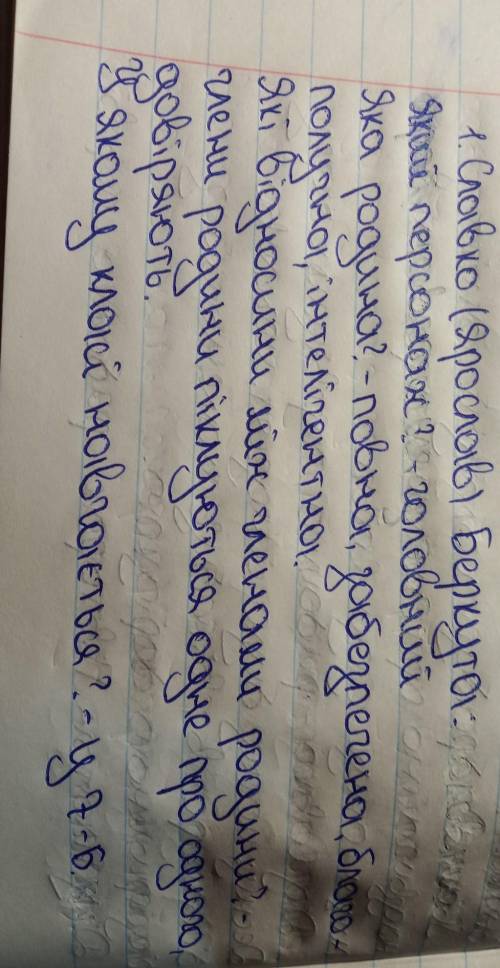 1. Славко (Ярослав) Беркута:
який персонаж? - головний
Яка родина? - повна, забезпечена, благо-
получна, інтелігентна.
Які відносини між членами родини? -
члени родини піклуються одне про одного,
довіряють.
У якому класі навчається? - У 7-Б.